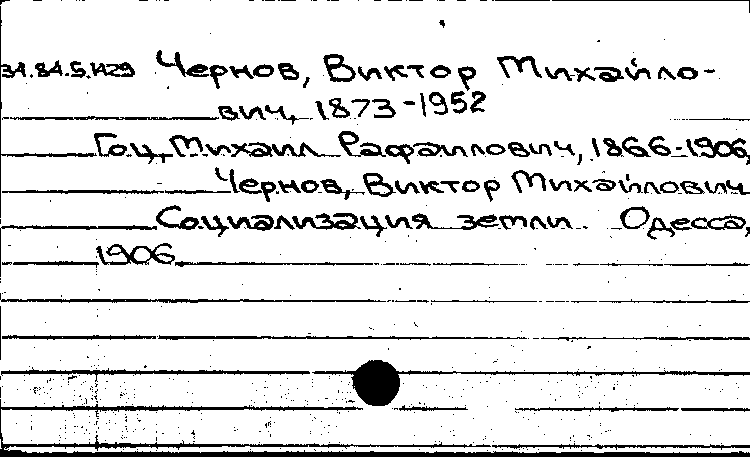 34.84.5.1429 Чернов, Виктор Михайло-
вич, 1873-1952
Гоц, Михаил Рафаилович, 1866-1906,
Чернов, Виктор Михайлович
Социализация земли. Одесса,
1906.